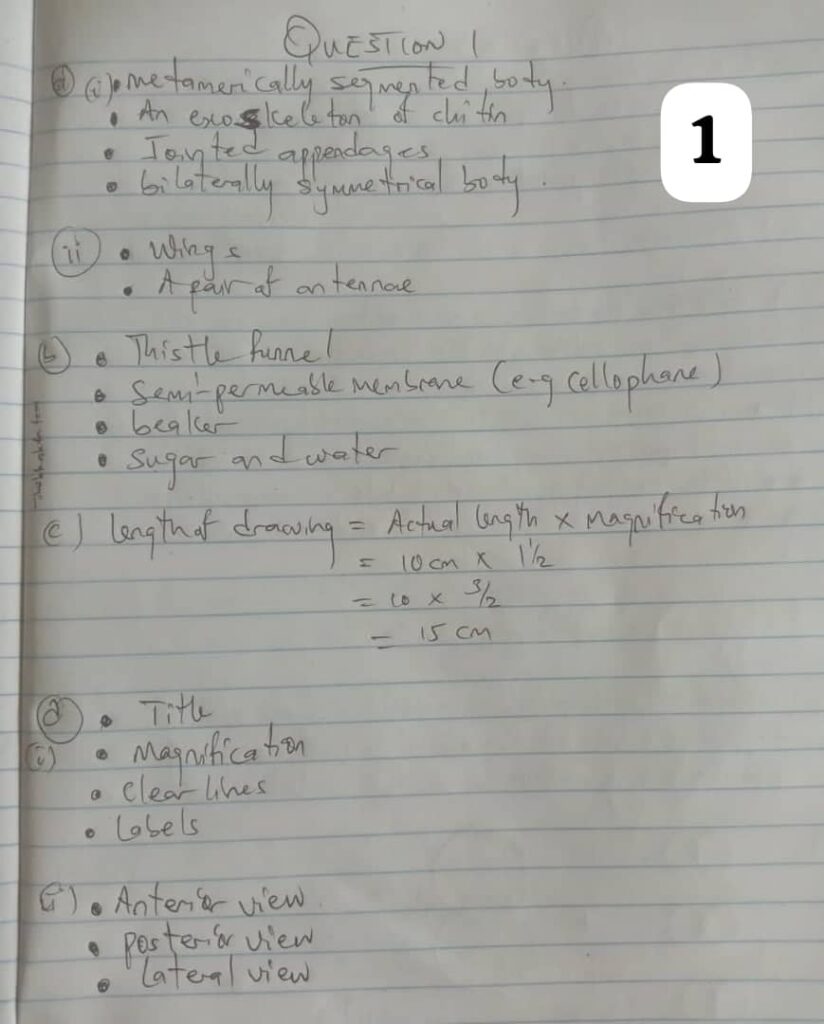 QUESTION 1
1
a (i) • metamerically segmented body.
• An exoskeleton of chitin
• Jointed appendages
• bilaterally symmetrical body.
ii • Wings
• A pair of antennae
b • Thistle funnel
• Semi-permeable membrane (e-g cellophane)
• beaker
• Sugar and water
c) length of drawing = Actual length x Magnification
= 10cm x 1 1/2
= 10 x 3/2
= 15 cm
d • Title
(i) • Magnification
• Clear lines
• Labels
ii) • Anterior view
• posterior view
• Lateral view